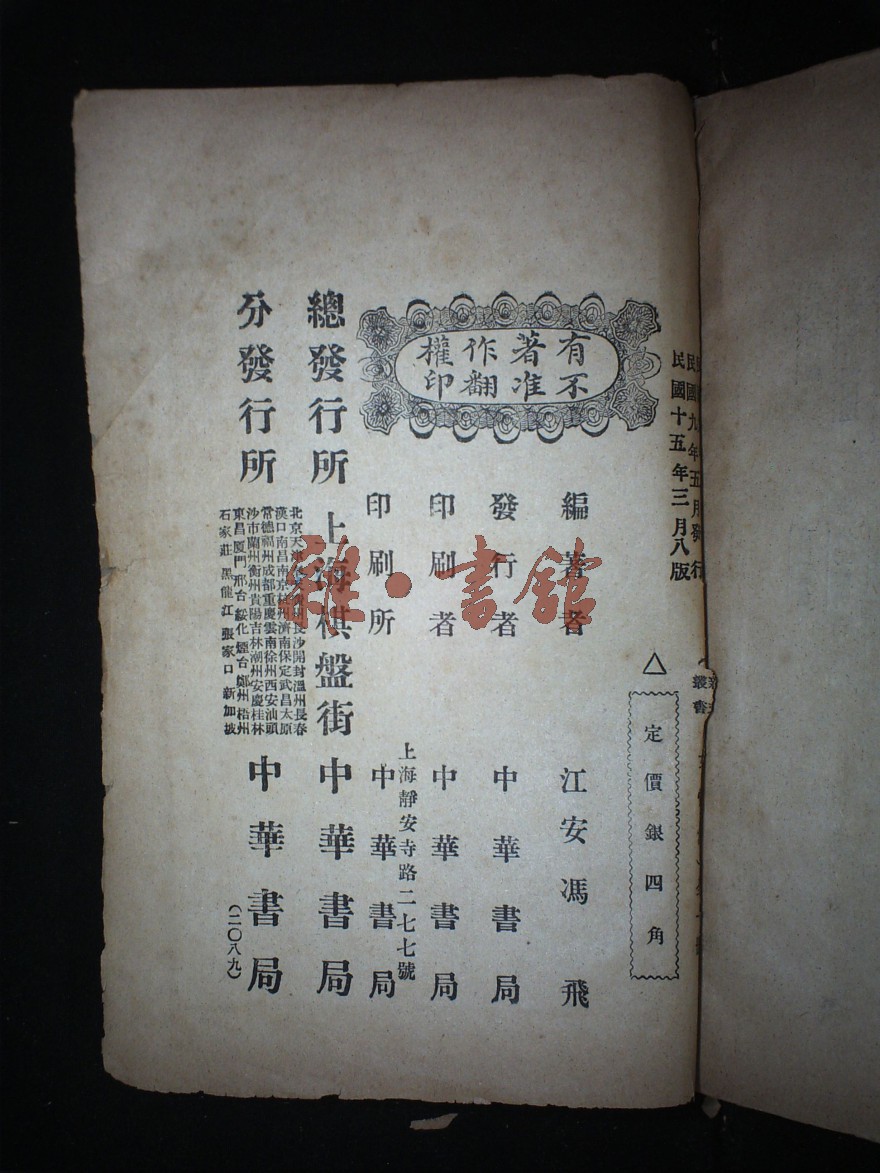 民國九年五月發行
民國十五年三月八版
叢書
△
定價銀四角
有著作權
不准翻印
編著者 江安馮飛
發行者 中華書局
印刷者 中華書局
印刷所 上海靜安寺路二七七號 中華書局
總發行所 上海棋盤街 中華書局
分發行所
北京天津 長沙開封溫州長春
漢口南昌南京杭州濟南保定武昌太原
常德福州成都重慶雲南徐州西安汕頭
沙市蘭州衡州貴陽吉林潮州安慶桂林
東昌廈門邢台綏化煙台鄭州梧州
石家莊黑龍江張家口新加坡
中華書局
(二〇八九)
雜·書館